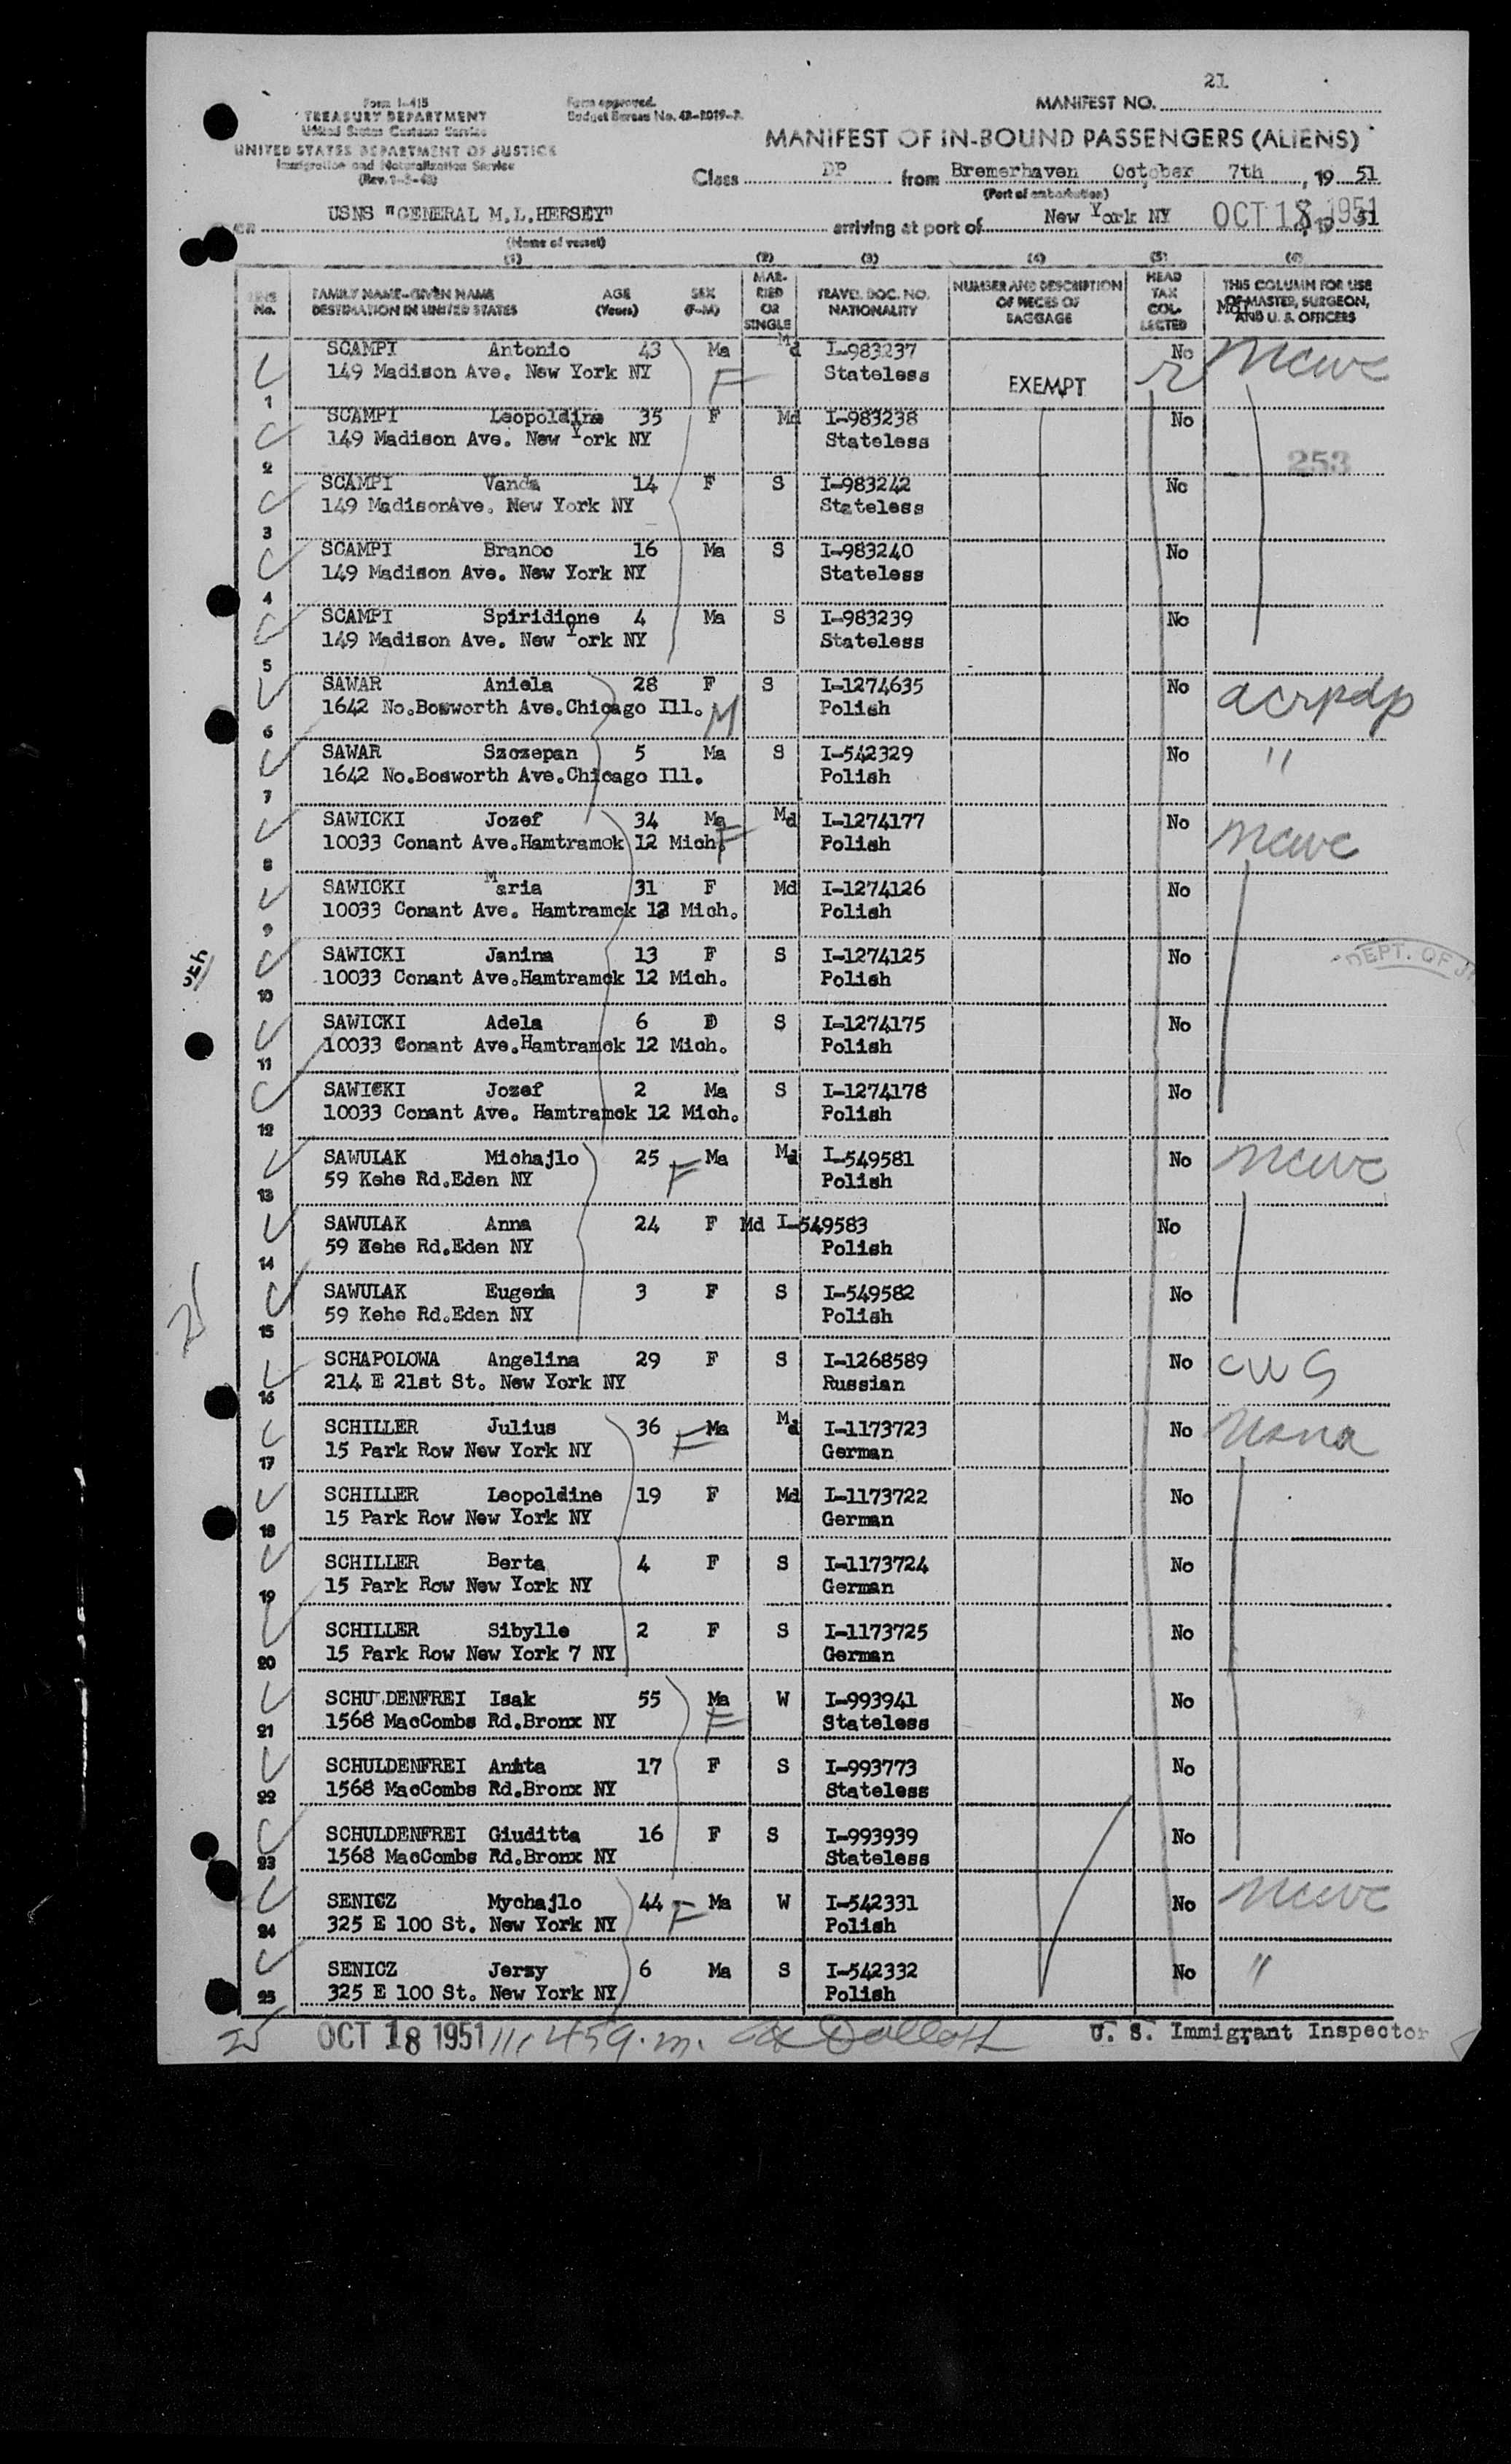 21
Form I-415
TREASURY DEPARTMENT
United States Customs Service
UNITED STATES DEPARTMENT OF JUSTICE
Immigration and Naturalization Service
Form approved.
Budget Bureau No. 43-R019-2.
MANIFEST NO.
MANIFEST OF IN-BOUND PASSENGERS (ALIENS)
Class DP from Bremerhaven October 7th, 19 51
(Port of embarkation)
USNS "GENERAL M.L.HERSEY" arriving at port of New York NY OCT 18 1951
(Name of vessel)
(1) (2) (3) (4) (5) (6)
LINE No. FAMILY NAME-GIVEN NAME DESTINATION IN UNITED STATES AGE (Years) SEX (F-M) MARRIED OR SINGLE TRAVEL DOC. NO. NATIONALITY NUMBER AND DESCRIPTION OF PIECES OF BAGGAGE HEAD TAX COLLECTED THIS COLUMN FOR USE OF MASTER, SURGEON, AND U. S. OFFICERS
SCAMPI Antonio 43 Ma Md I-983237 No ncwc
1 149 Madison Ave. New York NY F Stateless EXEMPT
SCAMPI Leopoldina 35 F Md I-983238 No
2 149 Madison Ave. New York NY Stateless
253
SCAMPI Vanda 14 F S I-983242 No
3 149 MadisonAve. New York NY Stateless
SCAMPI Branco 16 Ma S I-983240 No
4 149 Madison Ave. New York NY Stateless
SCAMPI Spiridione 4 Ma S I-983239 No
5 149 Madison Ave. New York NY Stateless
SAWAR Aniela 28 F S I-1274635 No acrpdp
6 1642 No.Bosworth Ave.Chicago Ill. M Polish
SAWAR Szczepan 5 Ma S I-542329 No "
7 1642 No.Bosworth Ave.Chicago Ill. Polish
SAWICKI Jozef 34 Ma F Md I-1274177 No ncwc
8 10033 Conant Ave.Hamtramck 12 Mich. Polish
SAWICKI Maria 31 F Md I-1274126 No
9 10033 Conant Ave. Hamtramck 12 Mich. Polish
SAWICKI Janina 13 F S I-1274125 No
DEPT. OF
10 10033 Conant Ave.Hamtramck 12 Mich. Polish
SAWICKI Adela 6 S I-1274175 No
11 10033 Conant Ave.Hamtramck 12 Mich. Polish
SAWICKI Jozef 2 Ma S I-1274178 No
12 10033 Conant Ave. Hamtramck 12 Mich. Polish
SAWULAK Michajlo 25 F Ma Md I-549581 No ncwc
13 59 Kehe Rd.Eden NY Polish
SAWULAK Anna 24 F Md I-549583 No
14 59 Kehe Rd.Eden NY Polish
SAWULAK Eugenia 3 F S I-549582 No
15 59 Kehe Rd.Eden NY Polish
SCHAPOLOWA Angelina 29 F S I-1268589 No cws
16 214 E 21st St. New York NY Russian
SCHILLER Julius 36 F Ma Md I-1173723 No usna
17 15 Park Row New York NY German
SCHILLER Leopoldine 19 F Md I-1173722 No
18 15 Park Row New York NY German
SCHILLER Berta 4 F S I-1173724 No
19 15 Park Row New York NY German
SCHILLER Sibylle 2 F S I-1173725 No
20 15 Park Row New York 7 NY German
SCHU DENFREI Isak 55 Ma W I-993941 No
21 1568 MacCombs Rd.Bronx NY F Stateless
SCHULDENFREI Anita 17 F S I-993773 No
22 1568 MacCombs Rd.Bronx NY Stateless
SCHULDENFREI Giuditta 16 F S I-993939 No
23 1568 MacCombs Rd.Bronx NY Stateless
SENICZ Mychajlo 44 F Ma W I-542331 No ncwc
24 325 E 100 St. New York NY Polish
SENICZ Jerzy 6 Ma S I-542332 No "
25 325 E 100 St. New York NY Polish
25 OCT 18 1951 11:45 a.m. U. S. Immigrant Inspector